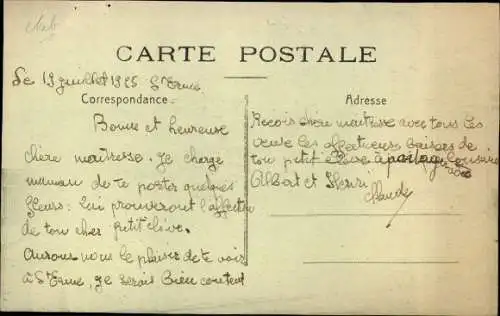 club
CARTE POSTALE
Le 19 juillet 1925 St Erme
Correspondance
Bonne et heureuse
chère maitresse. Je charge
maman de te porter quelques
fleurs: Qui prouveront l'affection
de ton cher petit élève.
Aurons nous le plaisir de te voir
à St Erme, je serais bien content
Adresse
Recois chère maitresse avec tous les
veux les affectueux baisers de
ton petit élève à partager cousins
Albert et Henri
Claude